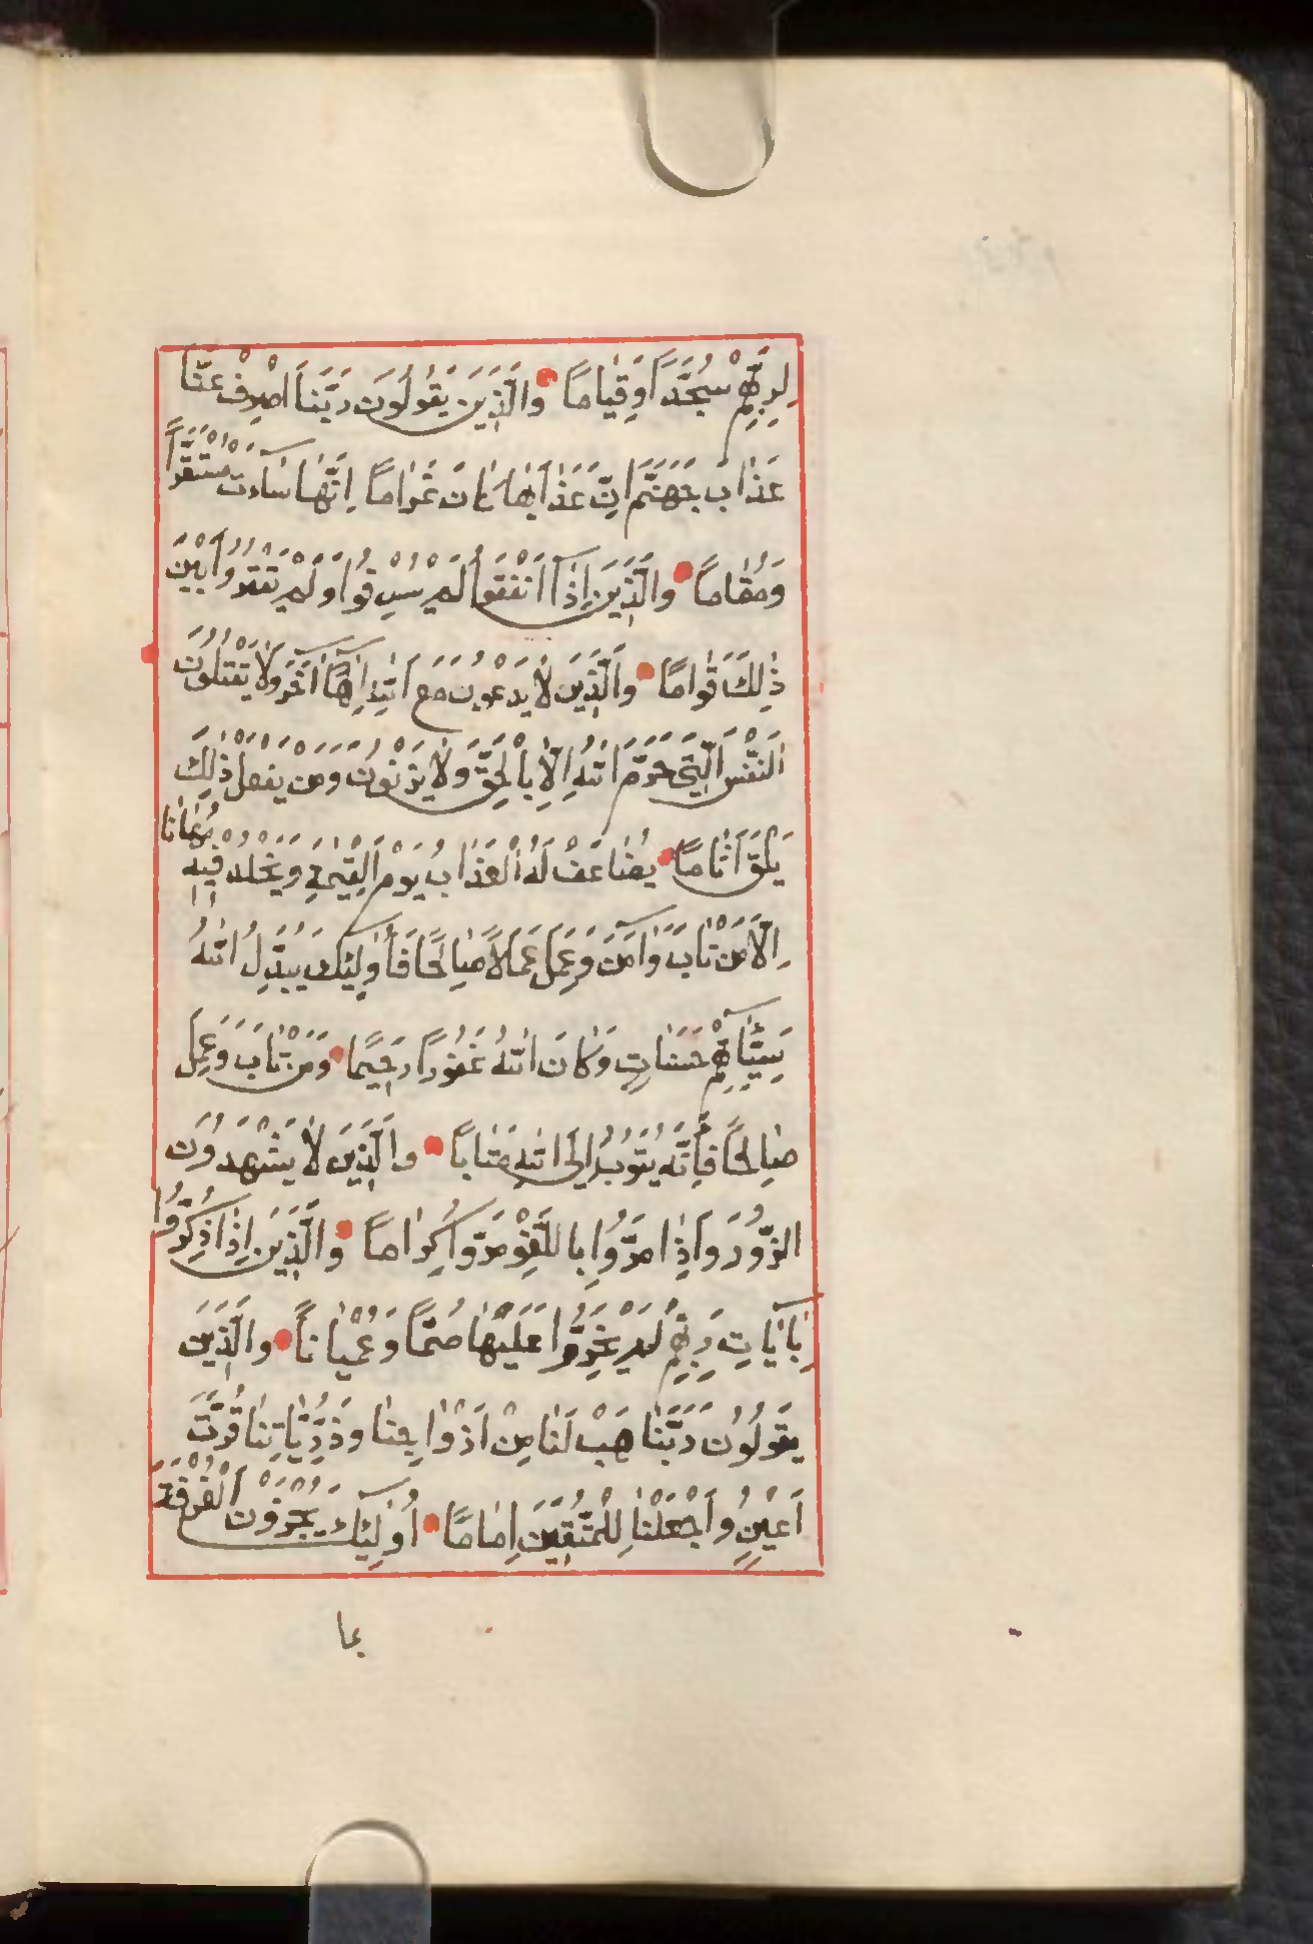 لِرَبِّهِمْ سُجَّدًا وَقِيَامًا وَالَّذِينَ يَقُولُونَ رَبَّنَا اصْرِفْ عَنَّا
عَذَابَ جَهَنَّمَ اِنَّ عَذَابَهَا كَانَ غَرَامًا اِنَّهَا سَاءَتْ مُسْتَقَرًّا
وَمُقَامًا وَالَّذِينَ اِذَآ اَنْفَقُوا لَمْ يُسْرِفُوا وَلَمْ يَقْتُرُوا بَيْنَ
ذٰلِكَ قَوَامًا وَالَّذِينَ لَا يَدْعُونَ مَعَ اللّٰهِ اِلٰهًا اٰخَرَ وَلَا يَقْتُلُونَ
النَّفْسَ الَّتِي حَرَّمَ اللّٰهُ اِلَّا بِالْحَقِّ وَلَا يَزْنُونَ وَمَنْ يَفْعَلْ ذٰلِكَ
يَلْقَ اَثَامًا يُضَاعَفْ لَهُ الْعَذَابُ يَوْمَ الْقِيٰمَةِ وَيَخْلُدْ فِيهِ مُهَانًا
اِلَّا مَنْ تَابَ وَاٰمَنَ وَعَمِلَ عَمَلًا صَالِحًا فَاُولٰئِكَ يُبَدِّلُ اللّٰهُ
سَيِّئَاتِهِمْ حَسَنَاتٍ وَكَانَ اللّٰهُ غَفُورًا رَحِيمًا وَمَنْ تَابَ وَعَمِلَ
صَالِحًا فَاِنَّهُ يَتُوبُ اِلَى اللّٰهِ مَتَابًا وَالَّذِينَ لَا يَشْهَدُونَ
الزُّورَ وَاِذَا مَرُّوا بِاللَّغْوِ مَرُّوا كِرَامًا وَالَّذِينَ اِذَا ذُكِّرُوا
بِاٰيَاتِ رَبِّهِمْ لَمْ يَخِرُّوا عَلَيْهَا صُمًّا وَعُمْيَانًا وَالَّذِينَ
يَقُولُونَ رَبَّنَا هَبْ لَنَا مِنْ اَزْوَاجِنَا وَذُرِّيَّاتِنَا قُرَّتَ
اَعْيُنٍ وَاجْعَلْنَا لِلْمُتَّقِينَ اِمَامًا اُولٰئِكَ يُجْزَوْنَ الْغُرْفَةَ
بما